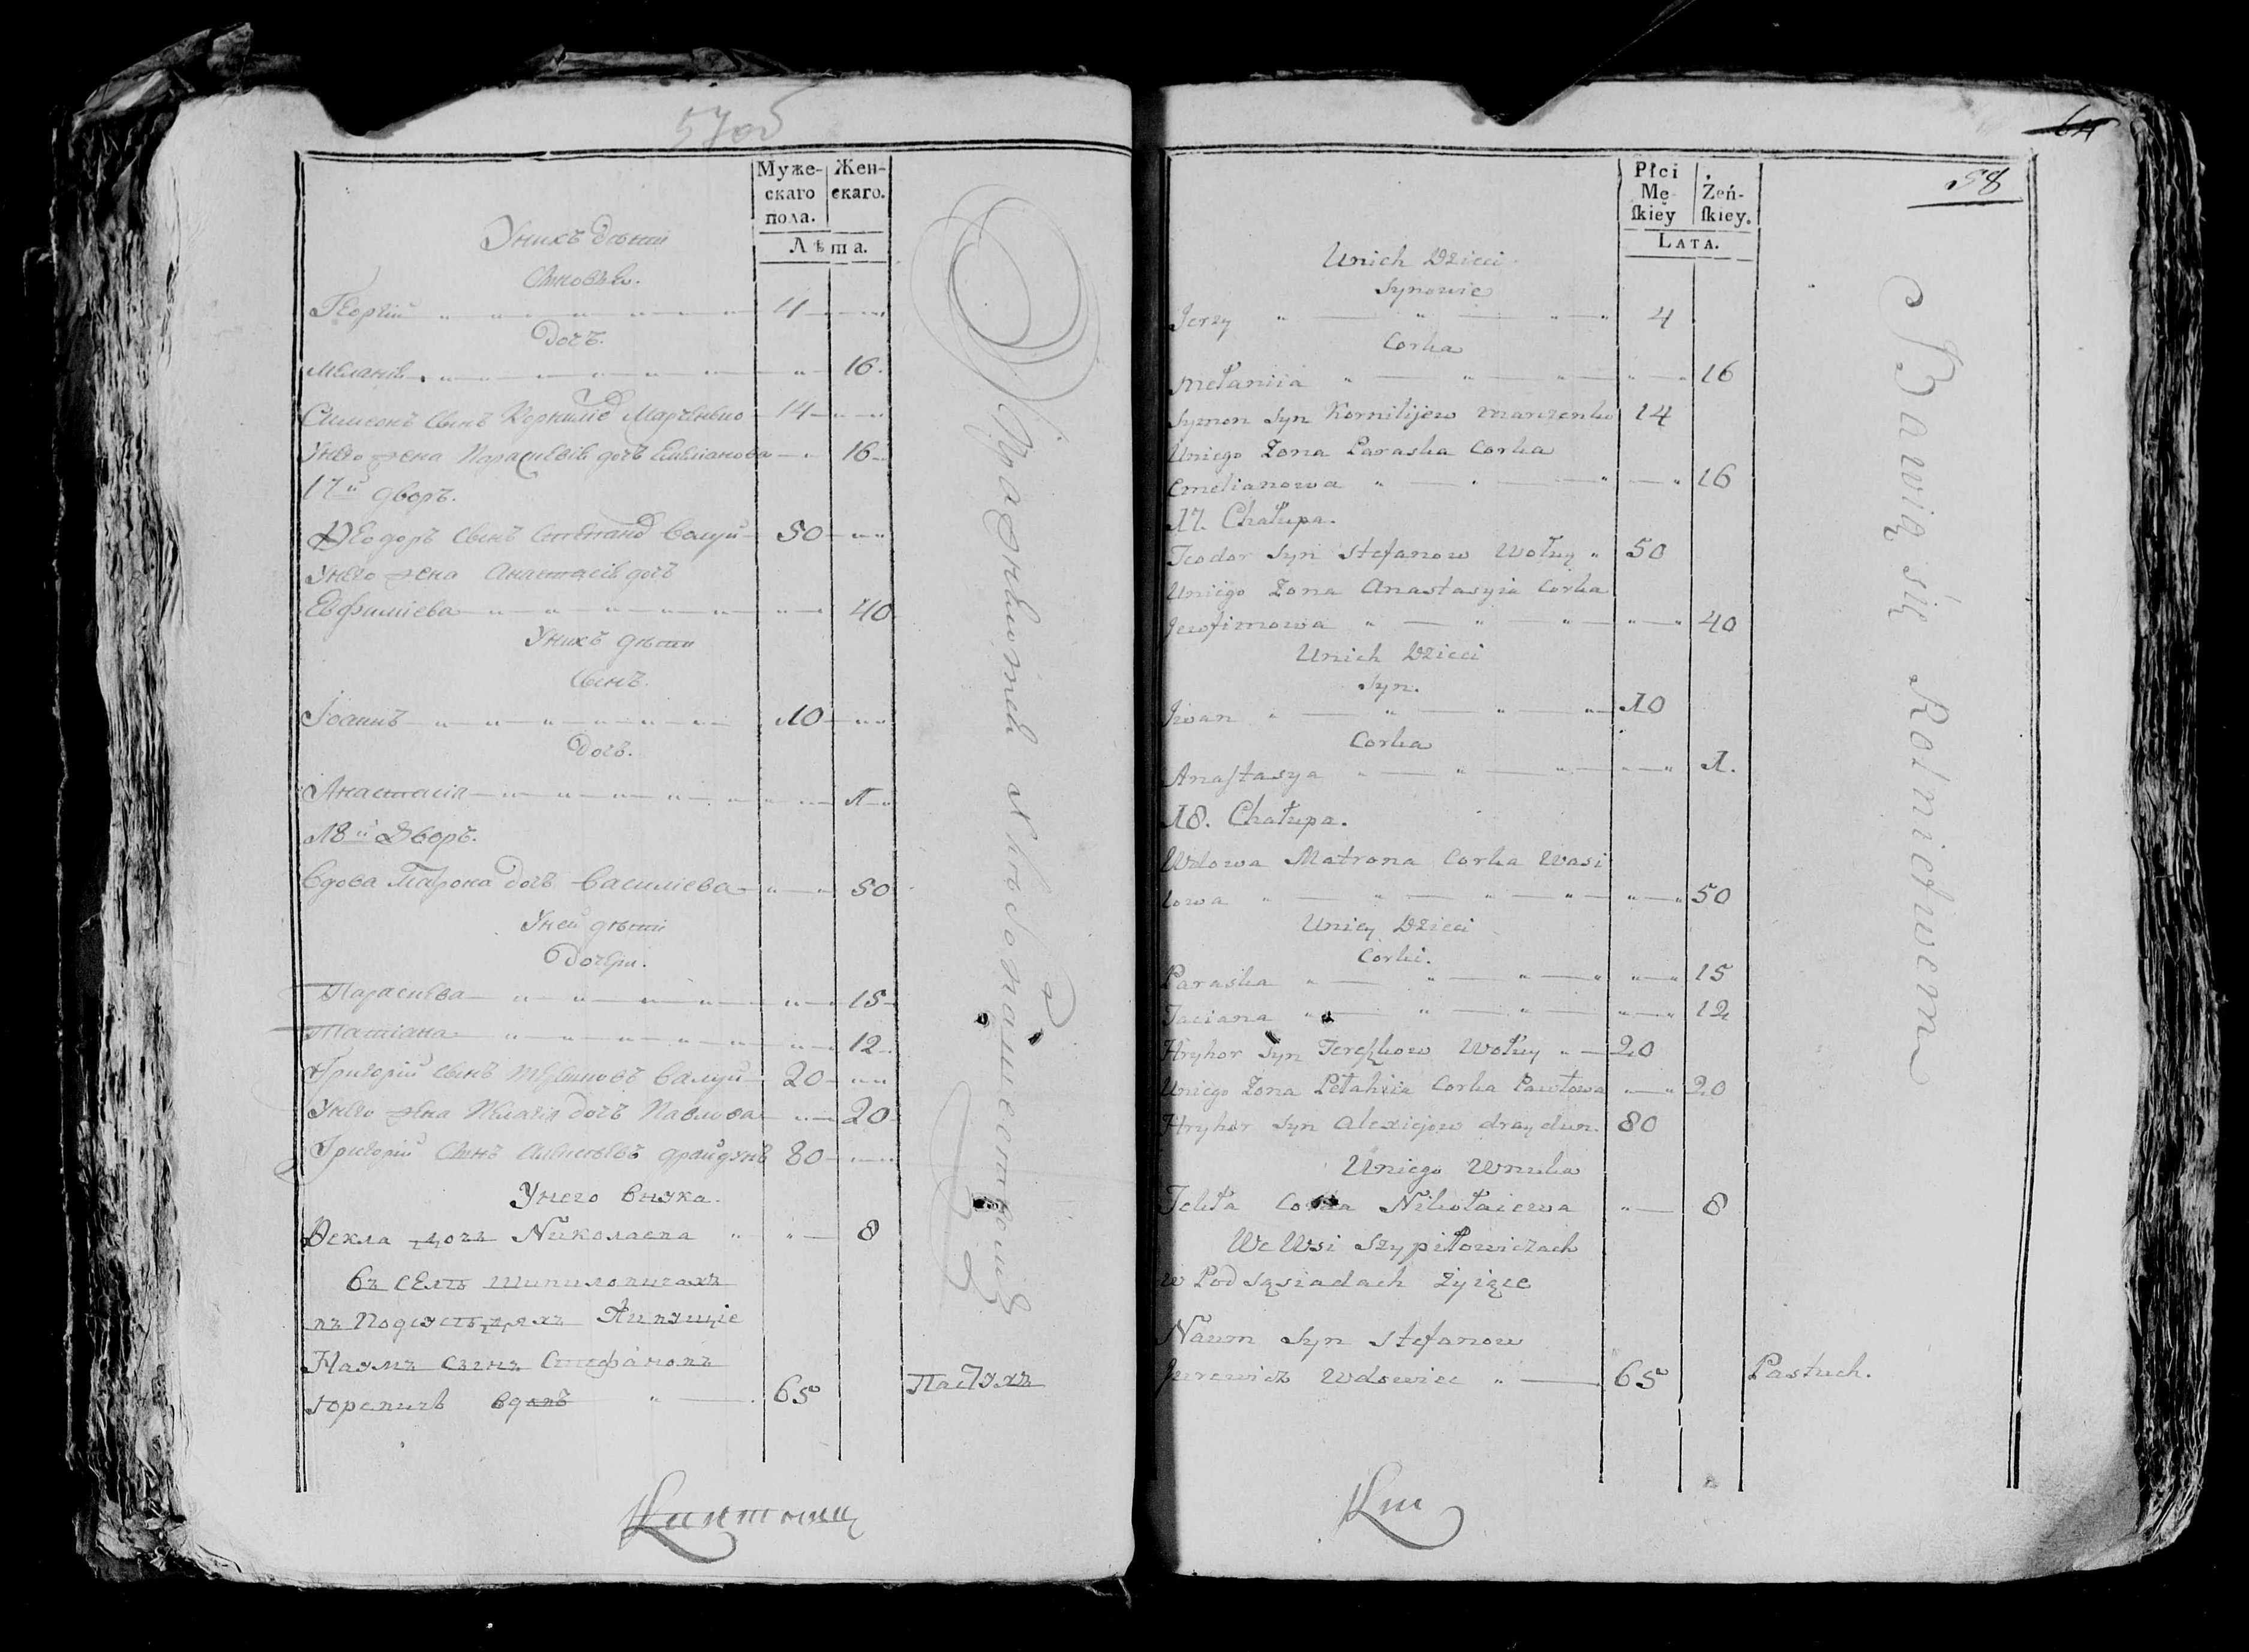 57об
Муже-
скаго
пола.
Жен-
скаго.
Лѣта.
Унихъ дѣти
Сыновья.
Георгий 4
Дочь.
Меланія 16.
Симеонъ сынъ Корнилов Марченко 14
Унего жена Параскевія дочь Емелianова 16
17й дворъ.
Ѳеодоръ сынъ Степанов Валуй 50
Унего жена Анастасія дочь
Евфиміева 40
Унихъ дѣти
Сынъ.
Іоаннъ 10
Дочь.
Анастасія 1
18й Дворъ.
Вдова Матрона дочь Василіева 50
Уней дѣти
Дочери.
Параскева 15
Татіана 12
Григорій сынъ Терешковъ Валуй 20
Унего жена Пелагія дочь Павлова 20
Григорій сынъ Алексѣевъ Драйдунъ 80
Унего внука.
Ѳекла дочь Николаева 8
Въ селѣ Шипиловичахъ
въ Подсусѣдяхъ Живущіе
Наумъ сынъ Стефановъ
Юревичъ вдовъ 65 Пастухъ
Упражняются Хлебопашеством
Płci
Mę
ſkiey
Żeń-
ſkiey.
LATA.
64
58
Unich Dzieci
Synowie
Jerzy 4
Corka
Mełaniia 16
Symon Syn Kornilijew Marczenko 14
Uniego Zona Paraska Corka
Emelianowa 16
17. Chałupa.
Teodor Syn Stefanow Wołuy 50
Uniego Zona Anastasyia Corka
Jewfimowa 40
Unich Dzieci
Syn.
Jwan 10
Corka
Anaſtasya 1.
18. Chałupa.
Wdowa Matrona Corka Wasi
lowa 50
Uniey Dzieci
Corki.
Paraska 15
Taciana 12
Hryhor Syn Tereſzkow Wołuy 20
Uniego Zona Pełahiia Corka Pawłowa 20
Hryhor Syn Alexiejow draydun. 80
Uniego Wnuka
Tekła Corka Nikołaiewa 8
We Wsi Szypiłowiczach
w Podsąsiadach żyiące
Naum Syn Stefanow
Jurewicz Wdowiec 65 Pastuch.
Bawią się Rolnictwem